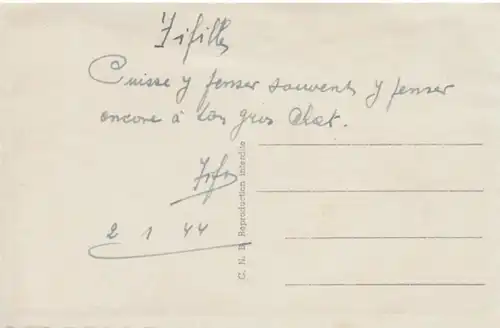 Fifille
Puisse y penser souvent y penser
encore à ton gros Chat.
2 1 44
Reproduction interdite